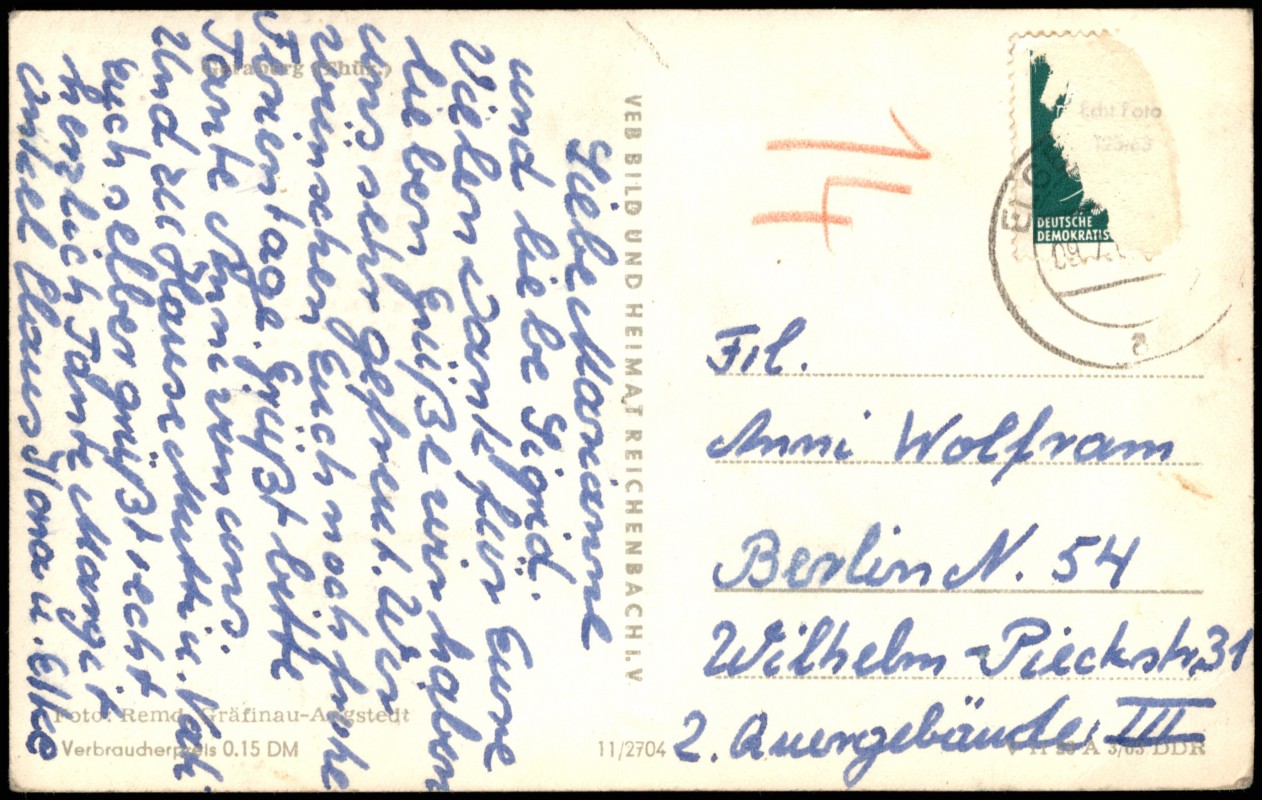 Geraberg (Thür.)
Liebe Marianne
und liebe Sigrid.
Vielen Dank für Eure
lieben Grüße wir haben
uns sehr gefreut. Wir
wünschen Euch noch frohe
Ferientage. Grüßt bitte
Tante Änni von uns.
Und zu Hause Mutti u. Vati
Euch selber grüßt recht
herzlich Tante Margit
Onkel Claus Ilona u. Elke
Foto: Remd, Gräfinau-Angstedt
Verbraucherpreis 0.15 DM
VEB BILD UND HEIMAT REICHENBACH I.V
11/2704
Echt Foto
DEUTSCHE
DEMOKRATIS
Frl.
Anni Wolfram
Berlin N. 54
Wilhelm-Pieckstr, 31
2. Quergebäude III
A 3/63 DDR